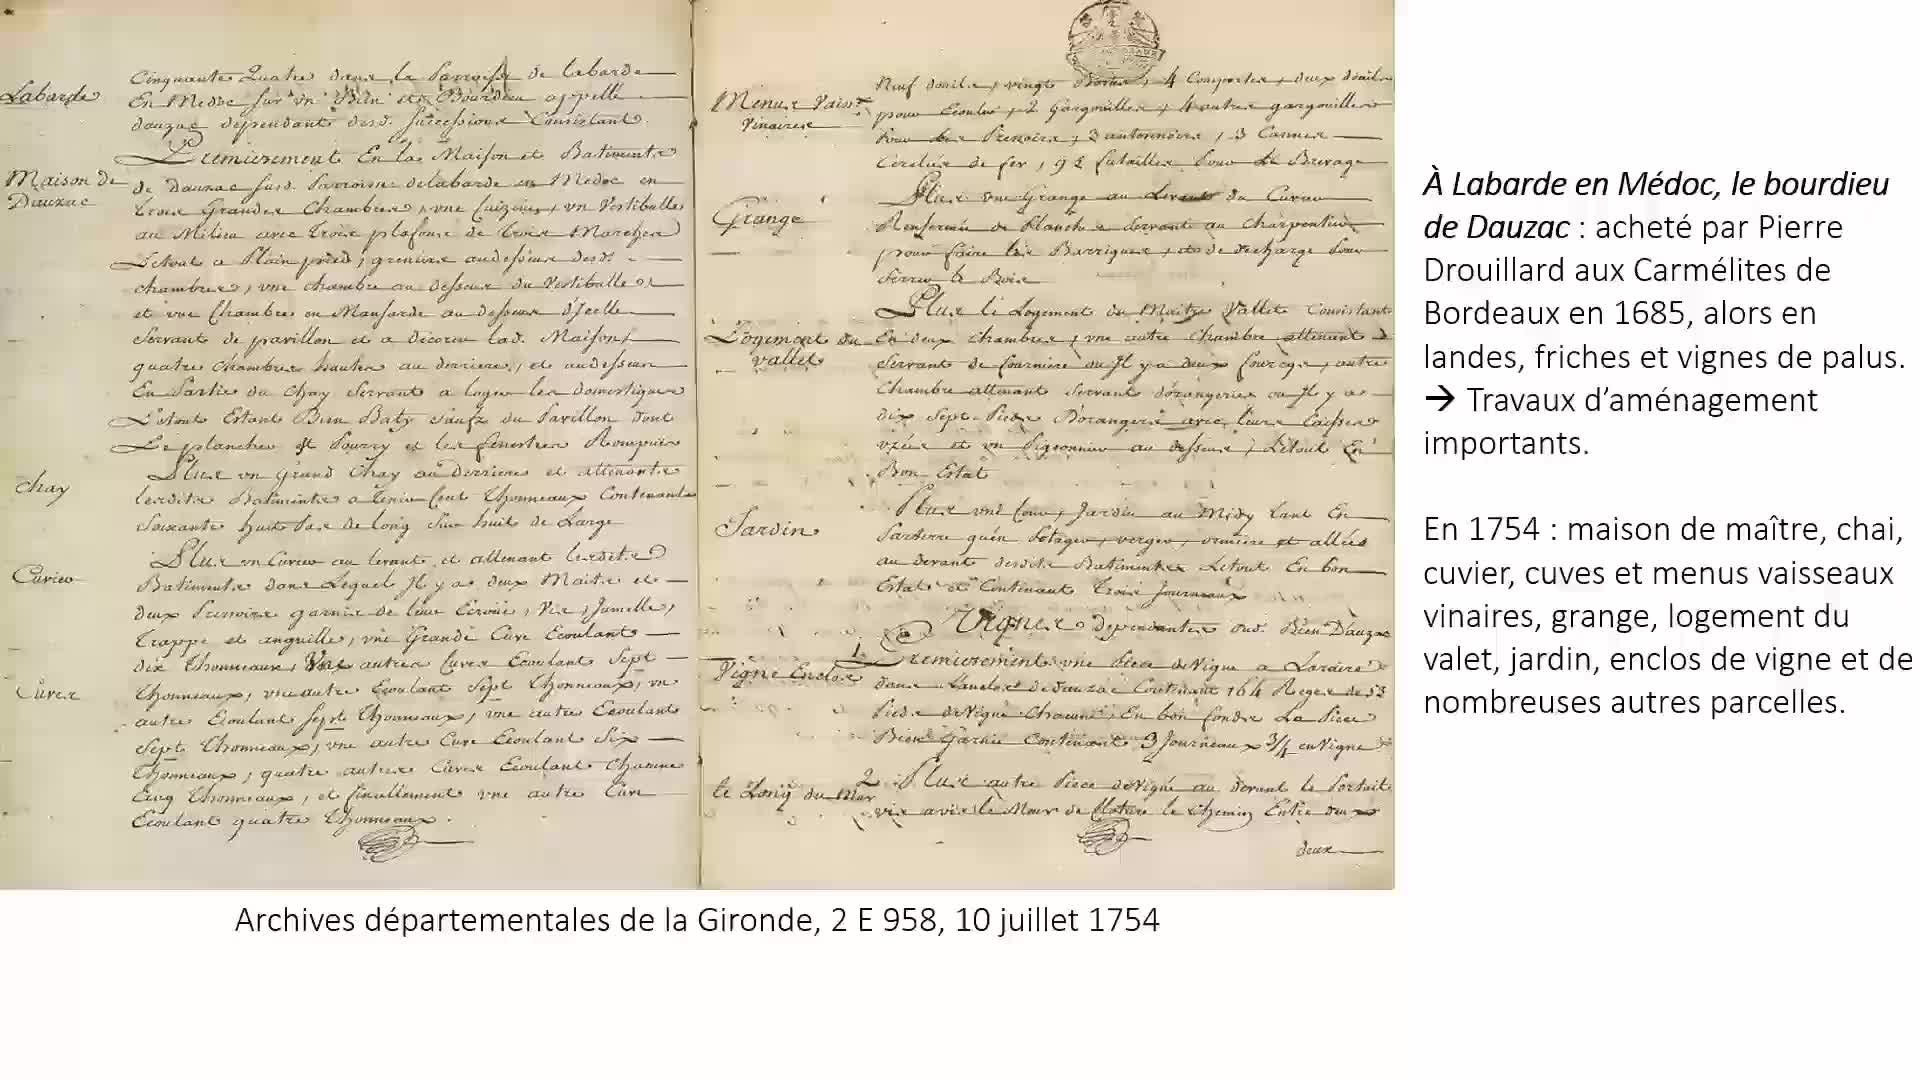 Labarde
Cinquante Quatre dans la Parroisse de labarde
En Medoc sur un Bien et Bourdieu appellé
dauzac dependant desd. successions Consistant
Maison de
Dauzac
Premierement En la Maison et Batiments
de Dauzac susd. Parroisse de labarde en Medoc en
trois Grandes Chambres, une Cuizine, un Vestibulle
au Milieu avec trois plafons de trois Marches
Letout a Plain pied, greniers audessus desd.
chambres, une chambre au dessus du Vestibulle
et une Chambre en Mansarde au dessus d'Jcelle
servant de pavillon et a décorer lad. Maison,
quatre chambres hautes au derriere, et audessus
En Partie du Chay servant a loger les domestiques
Letout Estant Bien Baty sauf du Pavillon dont
Le planché est Pourry et les fenestres Rompues
chay
Plus un Grand Chay au derriere et attenant
lesdits Batiments a tenir Cent thonneaux Contenant
soixante huit Pas de long sur huit de Large
Cuvier
Plus un Cuvier au levant et attenant lesdits
Batiments dans Lequel Jl y a deux Maits et
deux Pressoirs garnis de leur Ecrous, Vis, Jumelles,
Trappe et anguille, une Grande Cuve Ecoulant
dix thonneaux, Une autre Cuve Ecoulant sept
Cuves
thonneaux, une autre Ecoulant sept thonneaux, un
autre Ecoulant sept thonneaux, une autre Ecoulant
sept thonneaux, une autre Cuve Ecoulant six
thonneaux, quatre autres Cuves Ecoulant Chacune
Cinq thonneaux, et finallement une autre Cuve
Ecoulant quatre thonneaux.
Menus Vaiss.x
Vinaires
Neuf douils, vingt Bastes, 4 Comportes, deux douils
pour Ecouler, 2 Gargouilles, 4 autres gargouilles
Pour les Pressoirs, 3 3 Cannes
Cerclées de fer, 92 futailles Pour le Breuvage
Grange
Plus une Grange au Levant du Cuvier
Renfermée de Planches servant au Charpentier
pour faire les Barriques, et de decharge Pour
serrer le Bois
Logement du
vallet
Plus le Logement du Maitre Vallet Consistant
En deux chambres, une autre Chambre attenant
servant de fourniere ou Jl y a deux fours, autre
Chambre attenant servant d'orangerie ou Jl y a
dix sept Pieds D'orangers avec leurs Caisses
uzées et un Pigeonnier au dessus, Letout En
Bon Estat
Jardin
Plus une Cour, Jardin au Midy tant En
Parterre qu'en Potager, verger, et allées
au devant desdits Batiments Letout En bon
Estat et Contenant trois Journeaux
Vignes dependantes dud. Bien Dauzac
Vigne Enclos
1.
Premierement une Piece de Vigne a
dans L'anclos de dauzac Contenant 164 Reges de 53
Pieds de Vigne Chacune, En bon fonds La Piece
Bien Garnie Contenant 3 Journeaux 3/4 en Vigne
le Long du Mur
2
Plus autre Piece de Vigne au devant le Portail
vis a vis le Mur de Cloture le Chemin Entre deux
deux
À Labarde en Médoc, le bourdieu
de Dauzac : acheté par Pierre
Drouillard aux Carmélites de
Bordeaux en 1685, alors en
landes, friches et vignes de palus.
→ Travaux d’aménagement
importants.
En 1754 : maison de maître, chai,
cuvier, cuves et menus vaisseaux
vinaires, grange, logement du
valet, jardin, enclos de vigne et de
nombreuses autres parcelles.
Archives départementales de la Gironde, 2 E 958, 10 juillet 1754